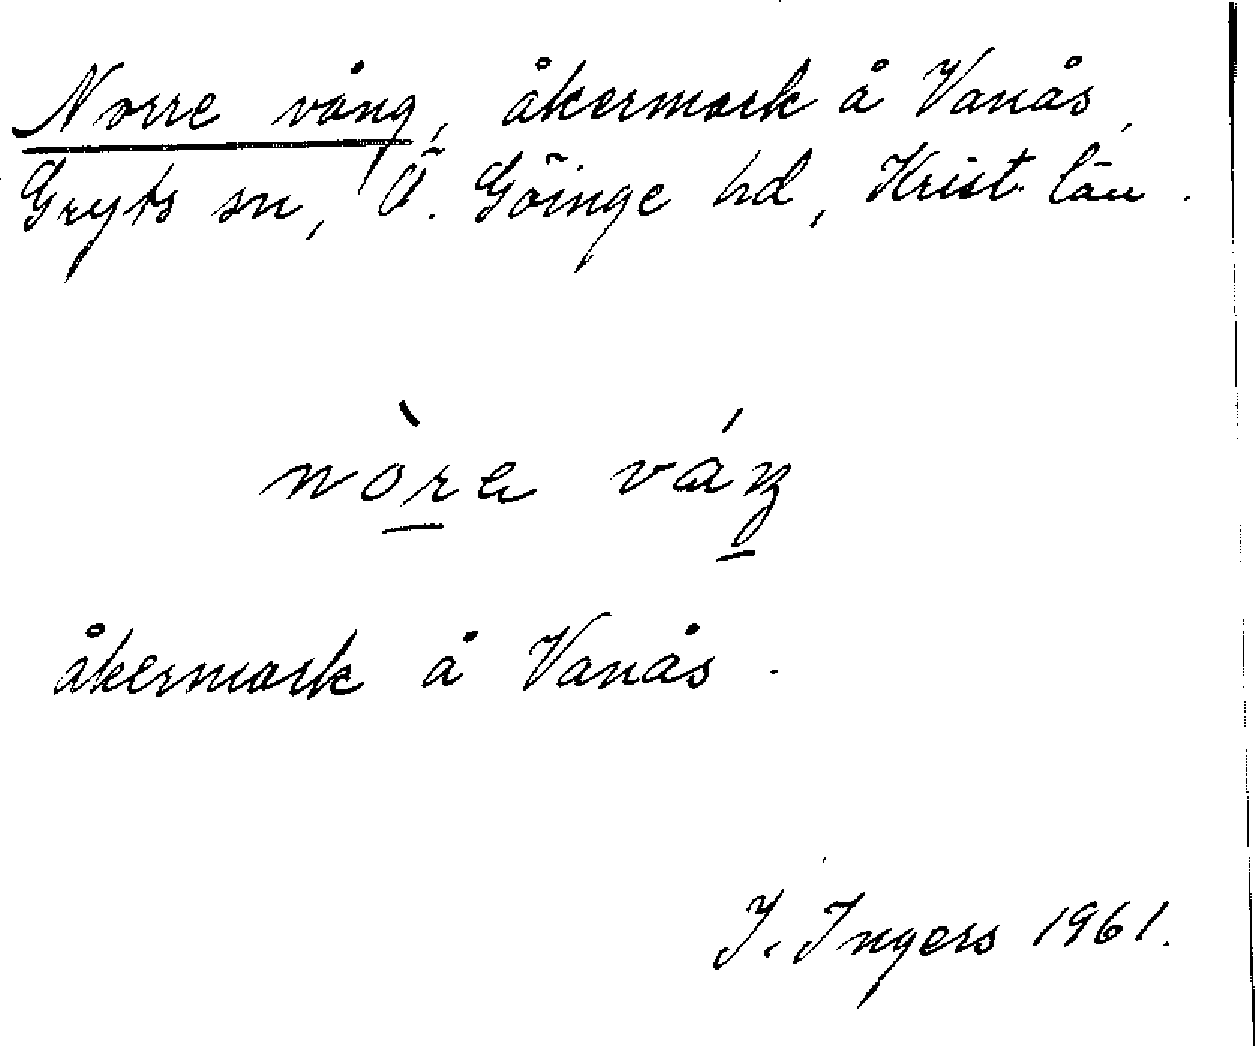 Norre vång, åkermark å Vanås,
Gryts sn, Ö. Göinge hd, Krist. län.
nòre váŋ
åkermark å Vanås.
I. Ingers 1961.